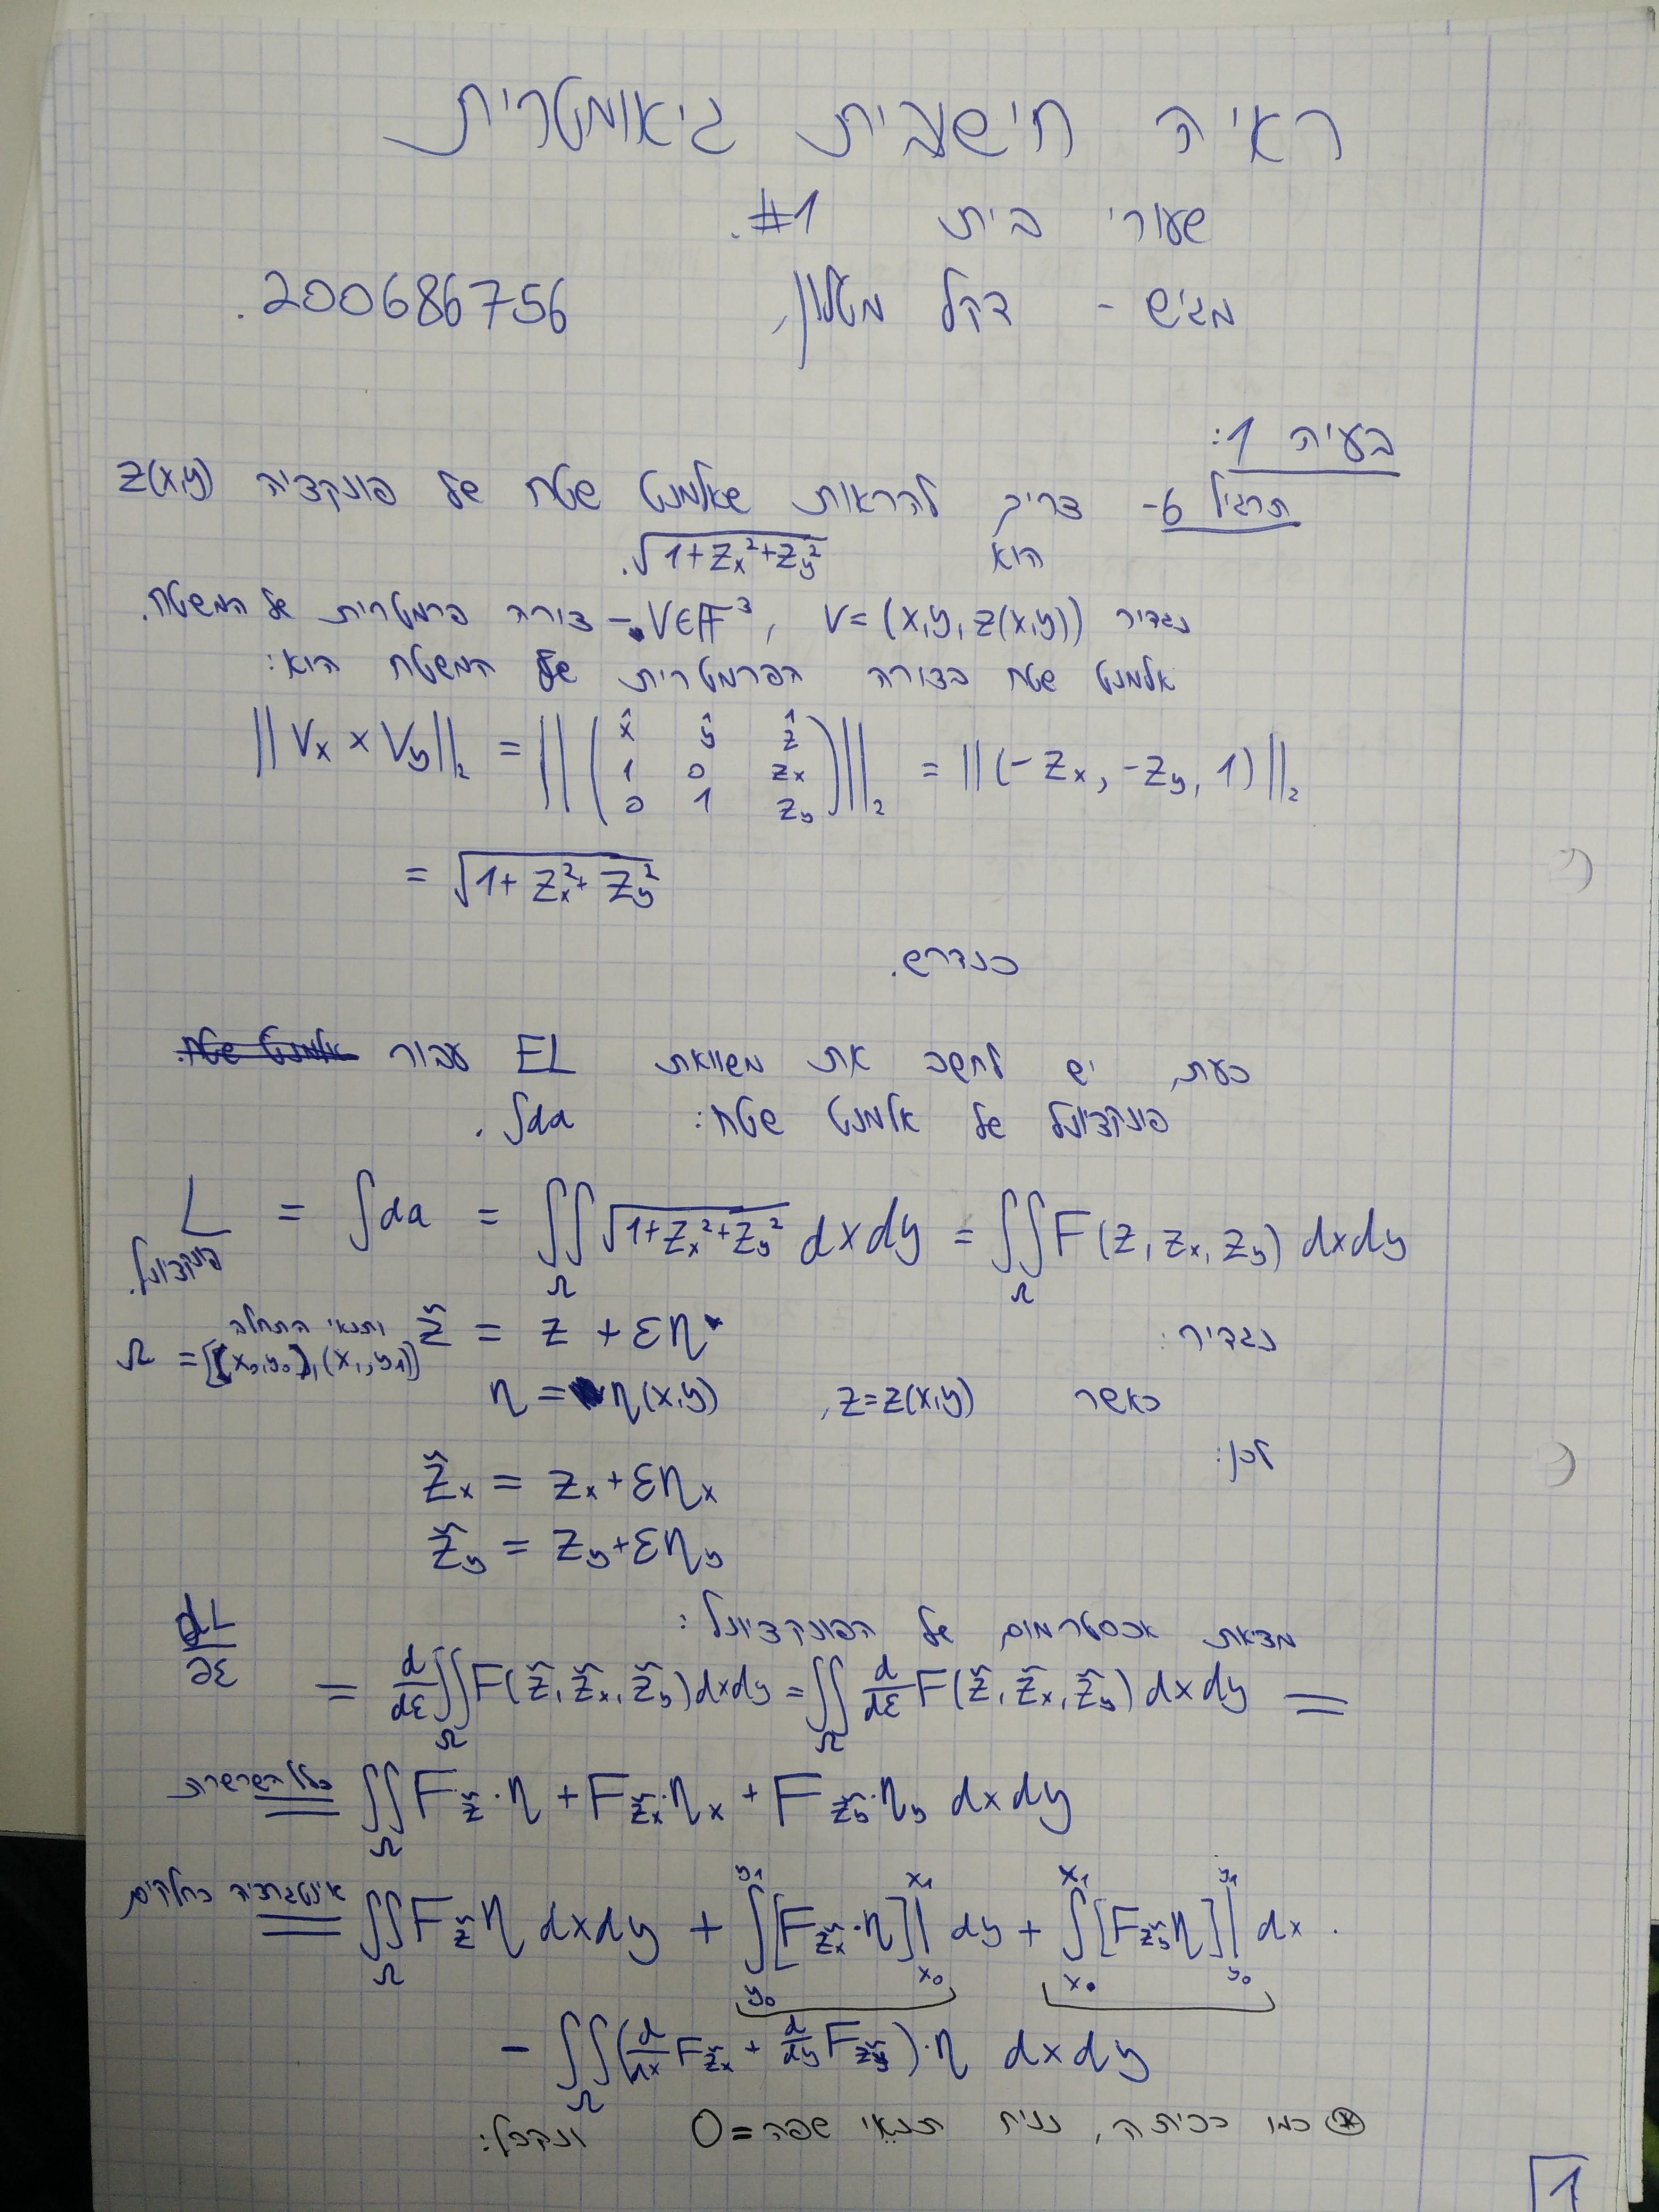 ראיה חישובית גיאומטרית
שעורי בית #1.
מגיש - דקל מטלון, 200686756.
בעיה 1:
תרגיל 6- צריך להראות שאלמנט שטח של פונקציה z(x,y)
הוא √(1+z_x²+z_y²).
נגדיר V=(x,y,z(x,y)) , V∈F³ - צורה פרמטרית של המשטח.
אלמנט שטח בצורה הפרמטרית של המשטח הוא:
||V_x × V_y||₂ = ||(x̂ ŷ ẑ
1 0 z_x
0 1 z_y)||₂ = ||(-z_x, -z_y, 1)||₂
= √(1+z_x²+z_y²)
כנדרש.
כעת, יש לחשב את משוואת EL עבור
פונקציונל של אלמנט שטח: ∫da.
L = ∫da = ∬_Ω √(1+z_x²+z_y²) dxdy = ∬_Ω F(z, z_x, z_y) dxdy
פונקציונל.
נגדיר: z̃ = z + εη
ותנאי התחלה
Ω = [(x₀,y₀),(x₁,y₁)]
כאשר z=z(x,y), η = η(x,y)
לכן:
z̃_x = z_x+εη_x
z̃_y = z_y+εη_y
מציאת אכסטרמום של הפונקציונל:
dL/∂ε = d/dε ∬_Ω F(z̃, z̃_x, z̃_y) dxdy = ∬_Ω d/dε F(z̃, z̃_x, z̃_y) dxdy =
כלל השרשרת = ∬_Ω F_z̃·η + F_z̃x·η_x + F_z̃y·η_y dxdy
אינטגרציה בחלקים = ∬_Ω F_z̃ η dxdy + ∫_{y₀}^{y₁} [F_z̃x·η]|_{x₀}^{x₁} dy + ∫_{x₀}^{x₁} [F_z̃y η]|_{y₀}^{y₁} dx.
- ∬_Ω (d/dx F_z̃x + d/dy F_z̃y)·η dxdy
⊛ כמו בכיתה, נניח תנאי שפה=0 ונקבל:
1